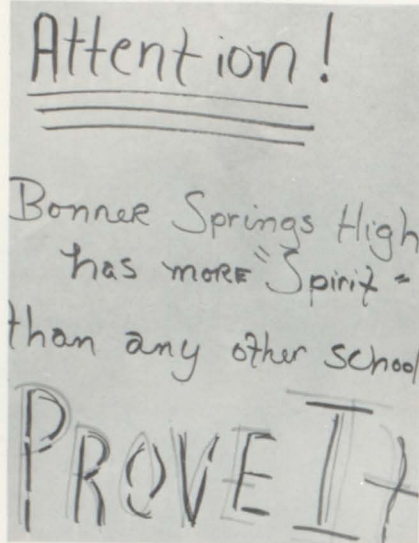 Attention!
Bonner Springs High
has more "Spirit"
than any other school
PROVE It